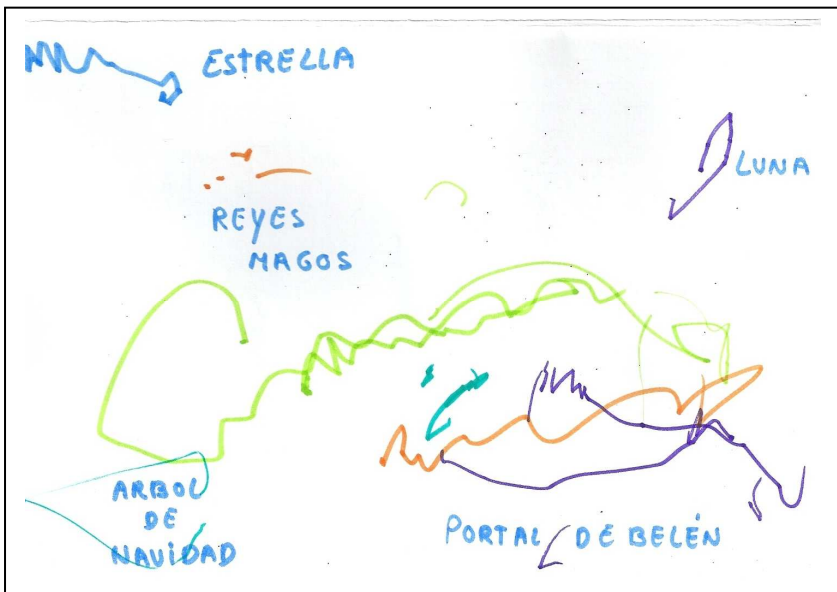 ESTRELLA
LUNA
REYES
MAGOS
ARBOL
DE
NAVIDAD
PORTAL DE BELÉN